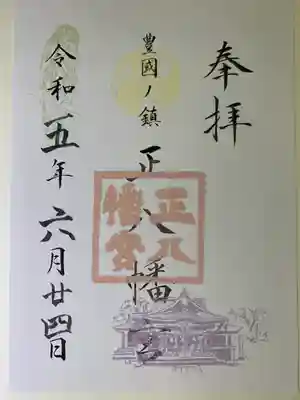 奉拝
豊國ノ鎮
正八幡宮
正八幡宮
令和五年六月廿四日